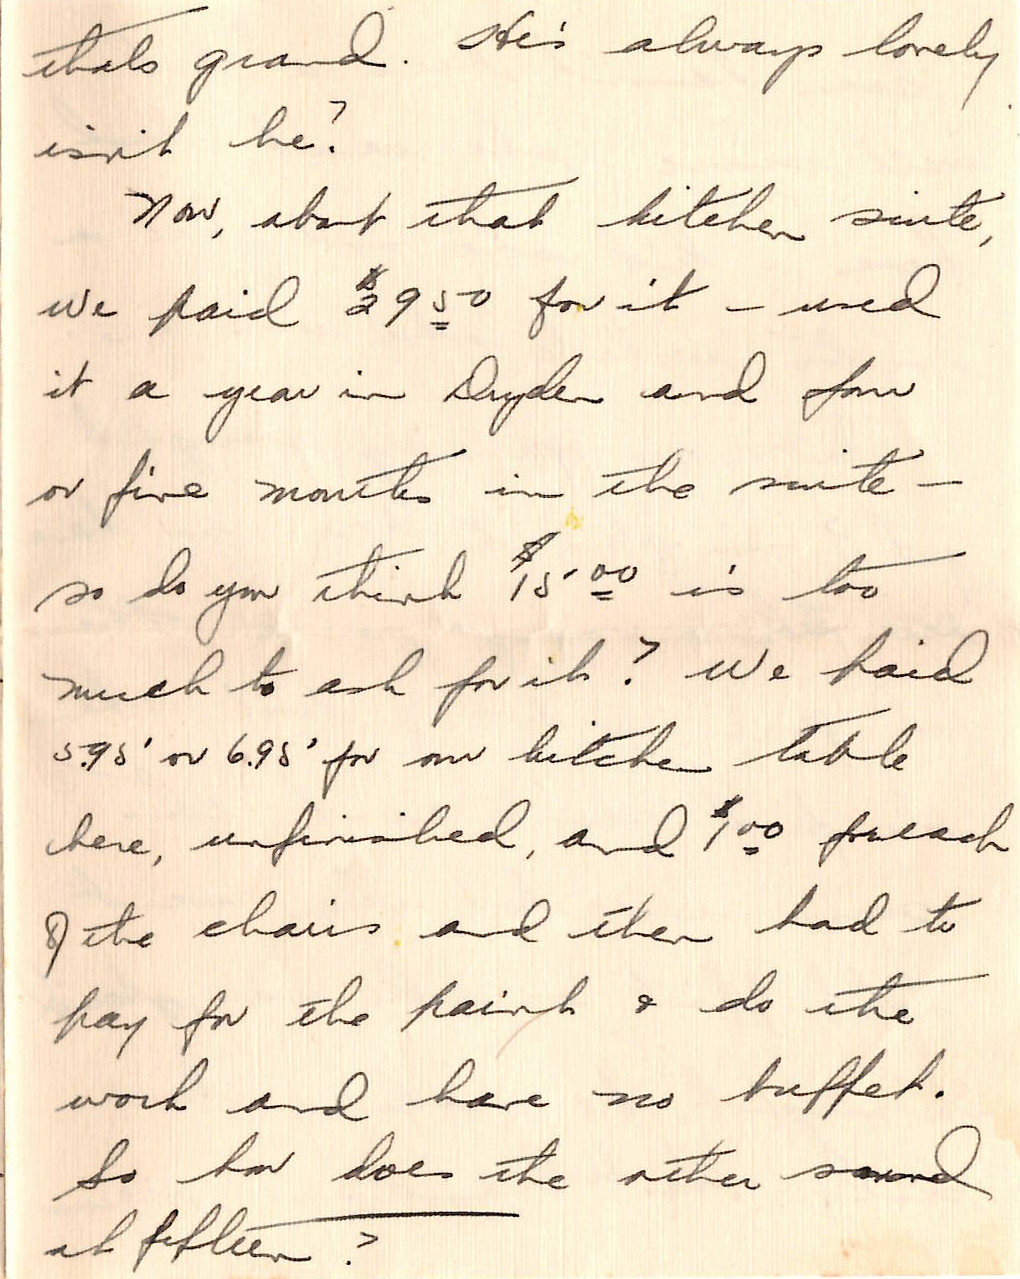 thats grand. He's always lovely
isn't he?
Now, about that kitchen suite,
we paid $29.50 for it - used
it a year in Dryden and four
or five months in the suite -
so do you think $15.00 is too
much to ask for it? We paid
5.95 or 6.95 for our kitchen table
here, unfinished, and $1.00 for each
of the chairs and then had to
pay for the paint & do the
work and have no buffet.
So how does the other sound
at fifteen?